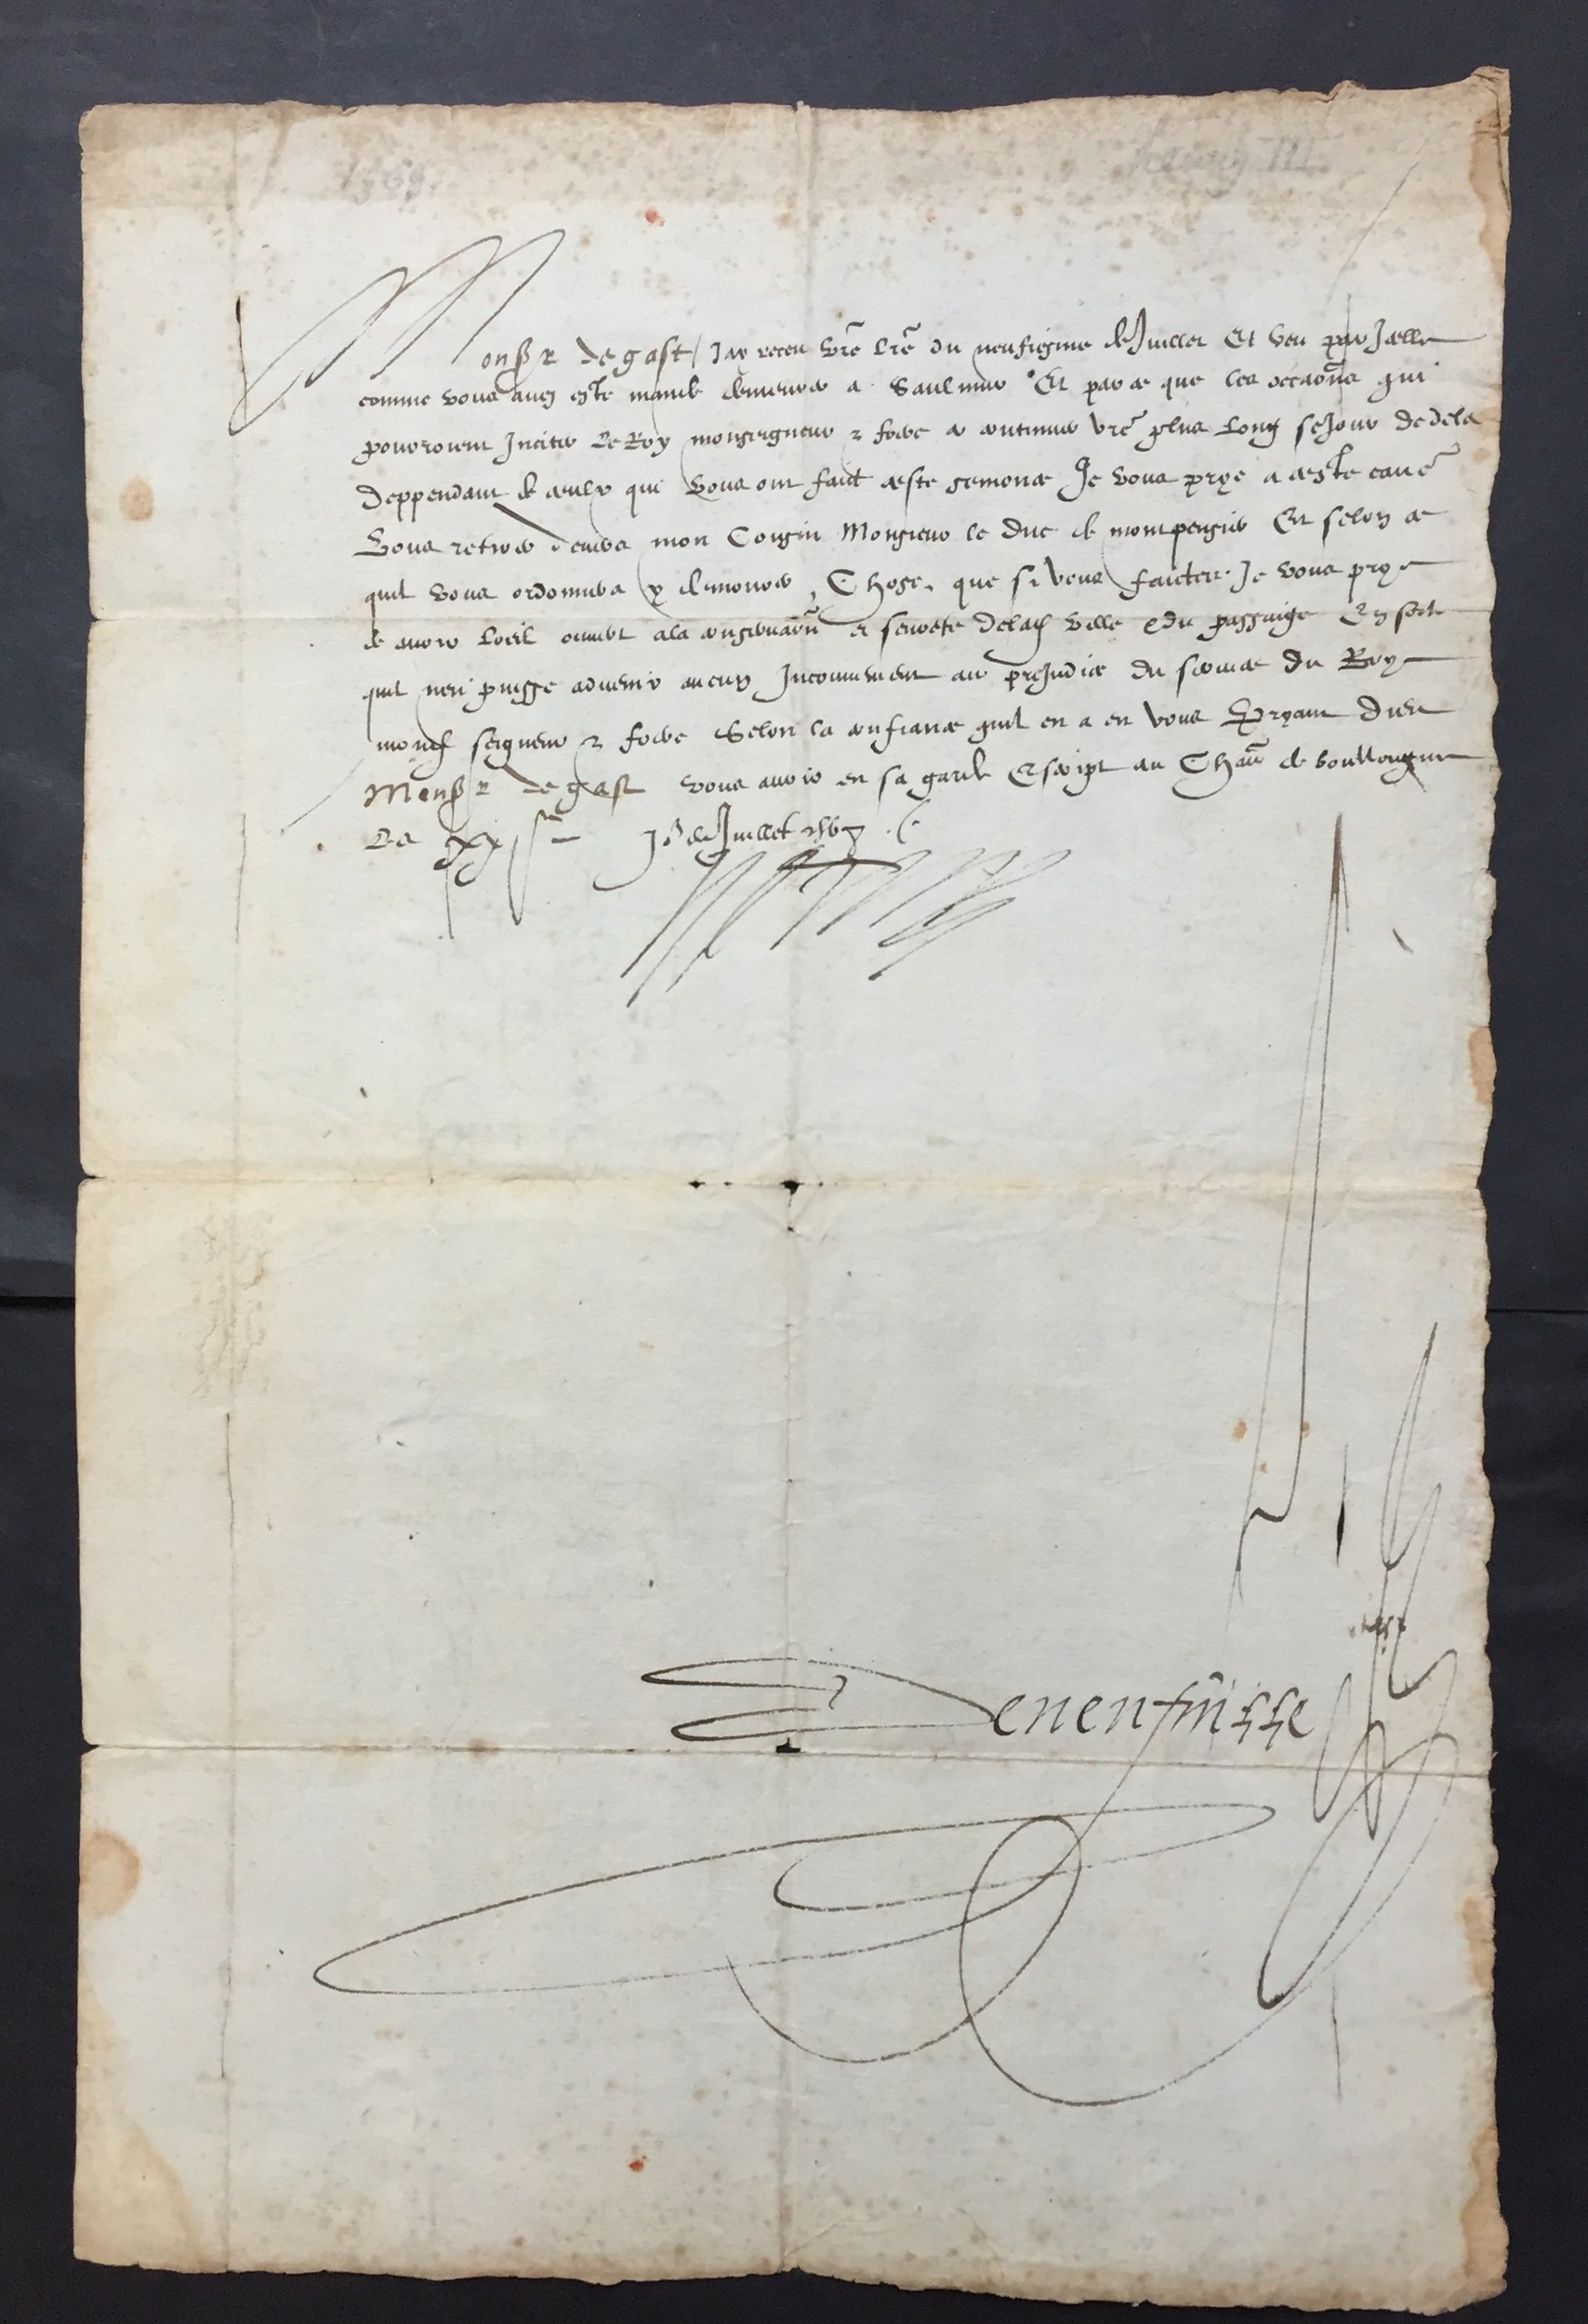 1568
henry III
Monsr de gast / Jay receu vre lre du neufiesme de Juillet Et veu par Jcelle
comme vous avez este mande demeurer a Saulmur Et par ce que les occaons qui
pourroient Jnciter Le Roy monseigneur & frere a continuer vre plus Long seJour dedela
deppendant de ceulx qui vous ont faict ceste semonce Je vous prye a ceste cause
Vous retirer devers mon Cousin Monsieur le duc de montpensier Et selon ce
quil vous ordonnera y demourer, Chose que si vous faictes Je vous prye
de avoir Loeil ouvert a la conservaon et seurete de lad ville & du passaige En sorte
quil nen puisse advenir aucun Jnconvenient au preJudice du service du Roy
mond seigneur & frere Selon la confiance quil en a en vous Pryant dieu
Monsr de gast vous avoir en sa garde Escript au Chau de boullongne
Le xx Jor de Juillet 1568
Henry